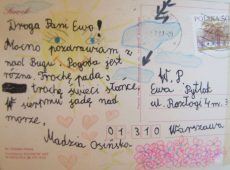 Droga Pani Ewo!
Mocno pozdrawiam z
nad Bugu. Pogoda jest
różna. Trochę pada,
trochę świeci słońce.
W sierpniu jadę nad
morze.
Madzia Osińska
W. P.
Ewa Pytlak
ul. Rozłogi 4 m. 3
01 310 Warszawa